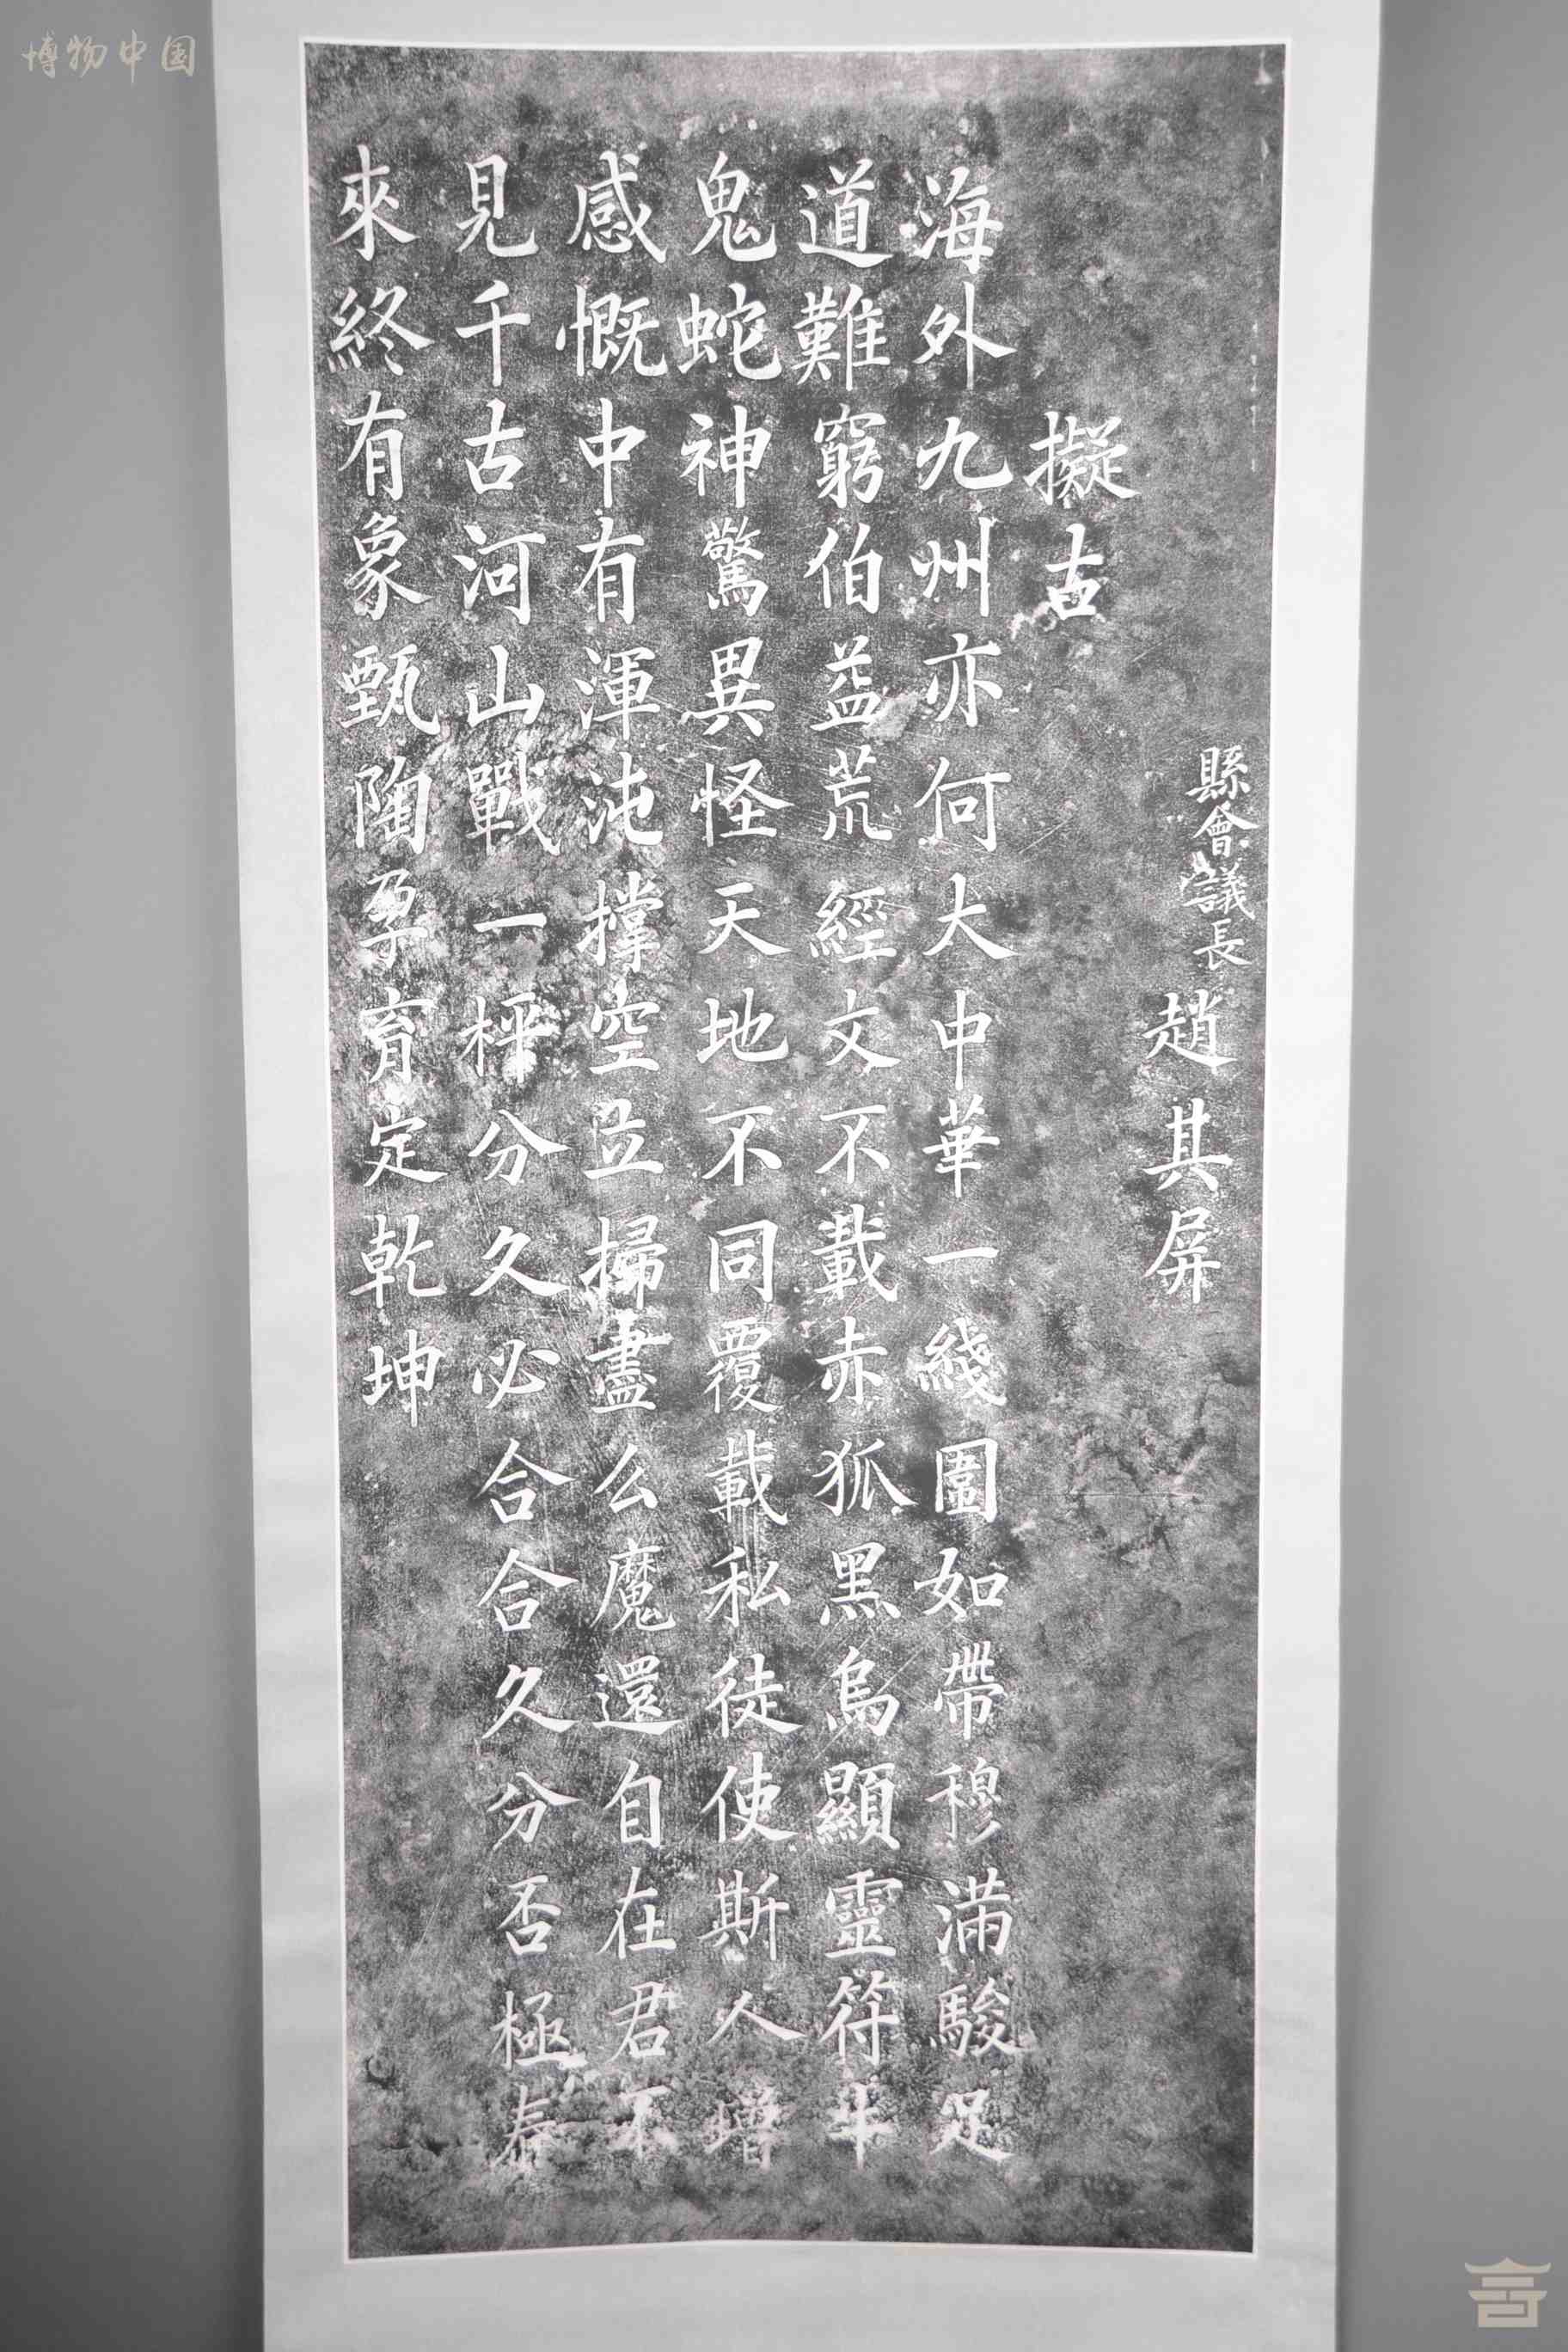 博物中国
縣會議長 趙其屏
擬古
海外九州亦何大中華一綫圖如帶穆滿駿足
道難窮伯益荒經文不載赤狐黑烏顯靈符牛
鬼蛇神驚異怪天地不同覆載私徒使斯人增
感慨中有渾沌撑空立掃盡么魔還自在君不
見千古河山戰一枰分久必合合久分否極泰
來終有象甄陶孕育定乾坤